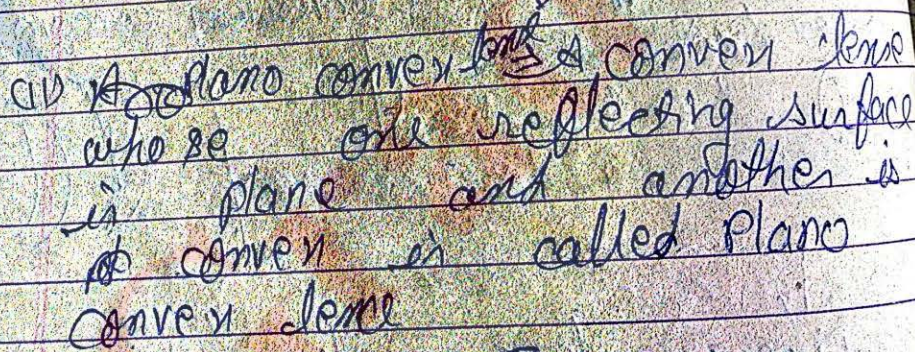 (ii) Plano convex lens ⇒ A convex lense
whose one reflecting surface
is plane and another is
convex is called Plano
Convex lense